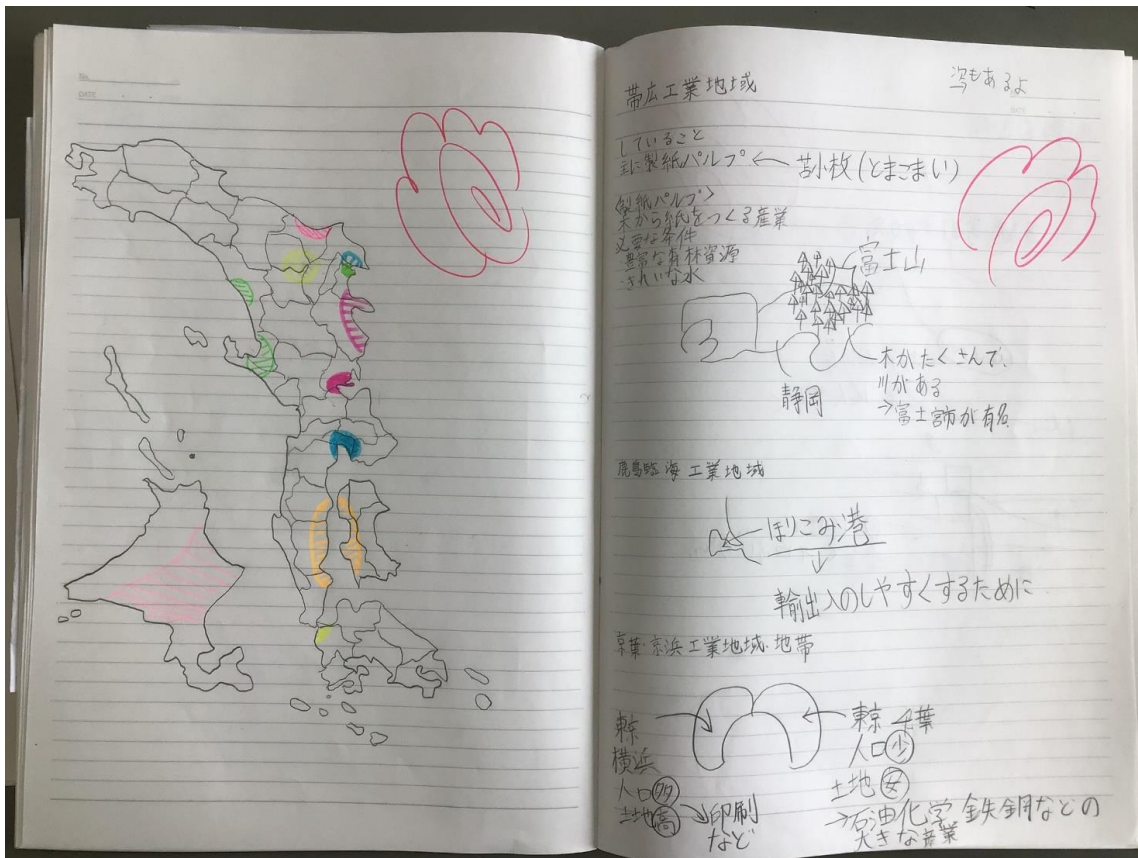 No.
DATE
帯広工業地域
次もあるよ
→
していること
主に製紙パルプ ← 苫小枚(とまこまい)
<製紙パルプ>
木から紙をつくる産業
必要な条件
・豊富な森林資源
・きれいな水
富士山
木がたくさんで、
川がある
→富士宮市が有名
静岡
鹿島臨海工業地域
ほりこみ港
↓
輸出入のしやすくするために
京葉・京浜工業地域・地帯
東京
横浜
人口多
土地高 → 印刷
など
東京 千葉
人口少
土地安
→石油化学 鉄鋼などの
大きな産業